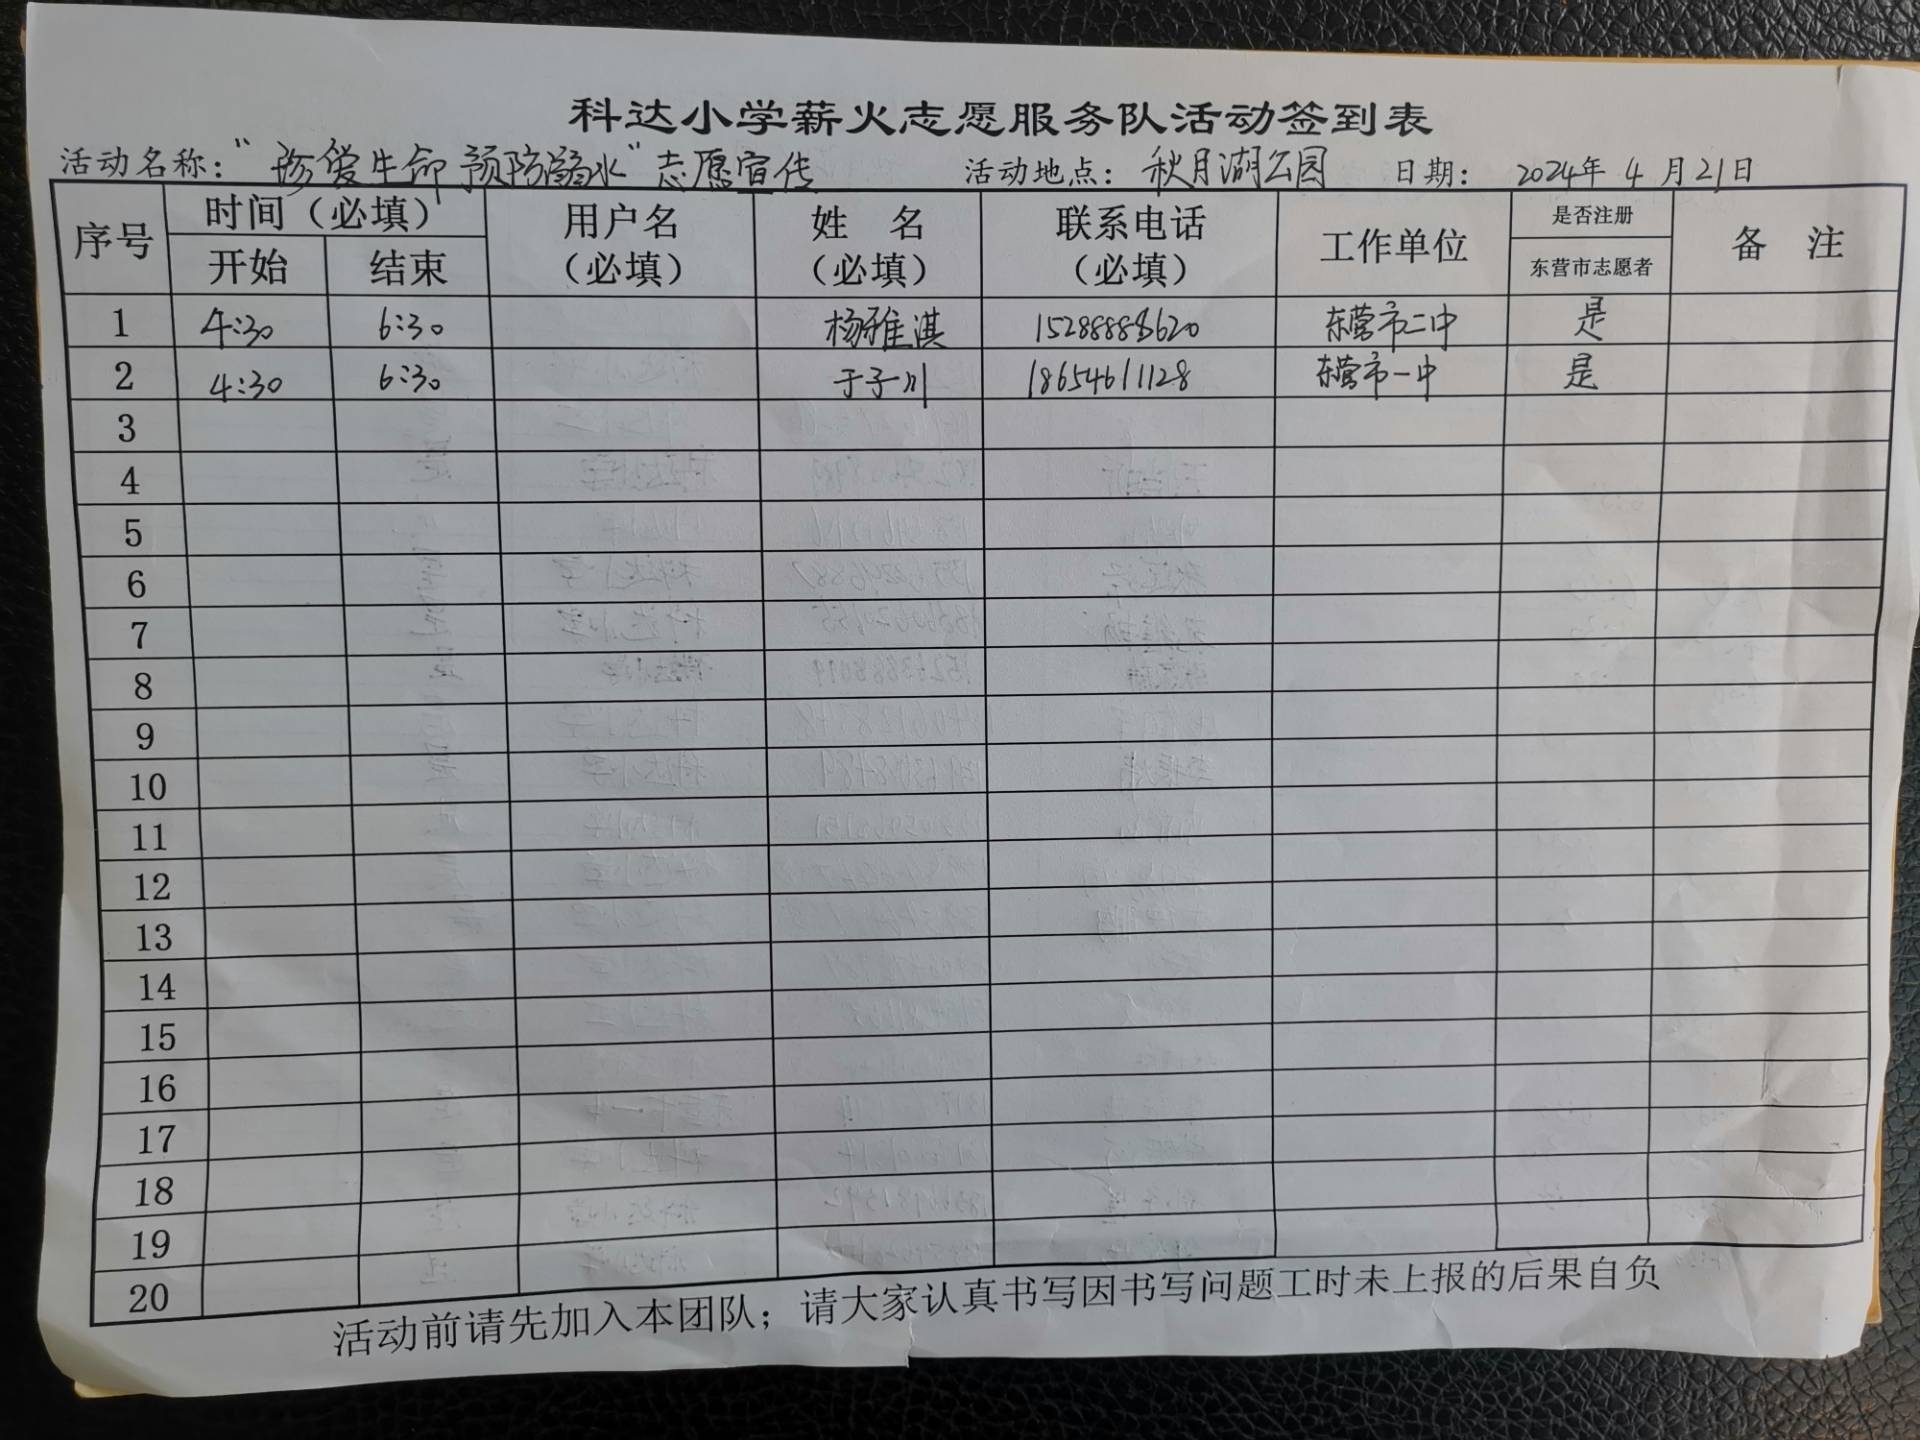 科达小学薪火志愿服务队活动签到表
活动名称：“珍爱生命 预防溺水”志愿宣传 活动地点：秋月湖公园 日期：2024年4月21日
序号 时间（必填） 用户名（必填） 姓 名（必填） 联系电话（必填） 工作单位 是否注册 备 注
开始 结束 东营市志愿者
1 4:30 6:30 杨雅淇 15288888620 东营市二中 是
2 4:30 6:30 于子川 18654611128 东营市一中 是
3
4
5
6
7
8
9
10
11
12
13
14
15
16
17
18
19
20
活动前请先加入本团队；请大家认真书写因书写问题工时未上报的后果自负